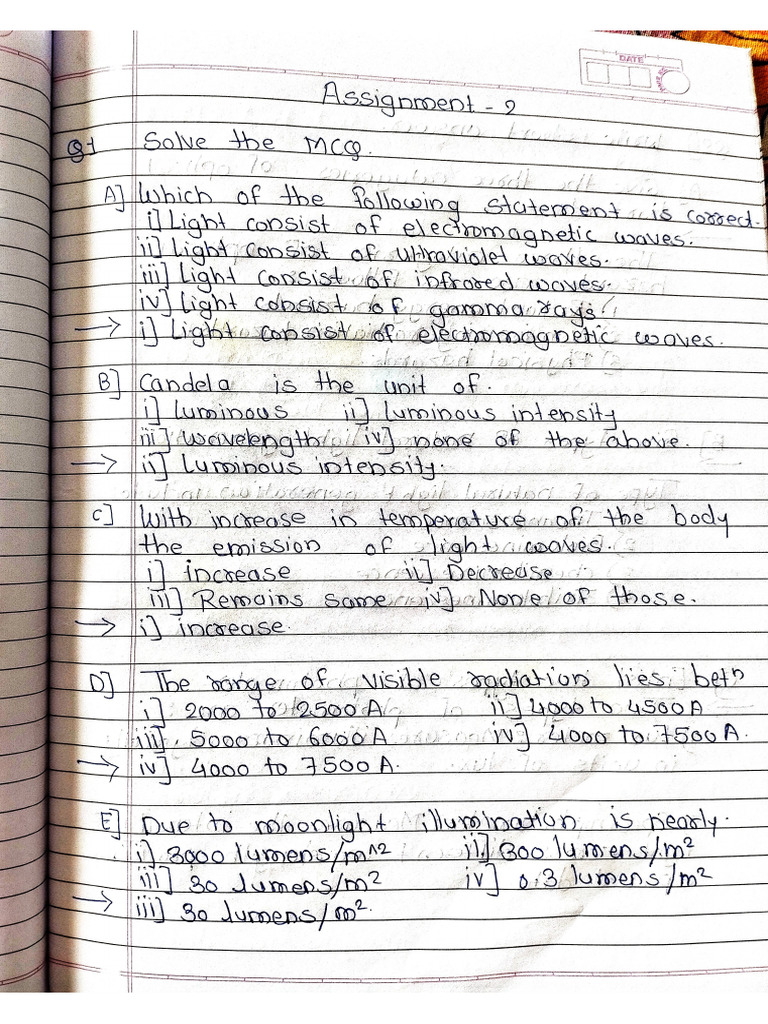 DATE
Assignment - 2
Q1 Solve the MCQ.
A] Which of the following statement is correct.
i] Light consist of electromagnetic waves.
ii] Light consist of ultraviolet waves.
iii] Light consist of infrared waves.
iv] Light consist of gamma rays
→ i] Light consist of electromagnetic waves.
B] Candela is the unit of.
i] luminous ii] luminous intensity
iii] wavelength iv] none of the above.
→ ii] Luminous intensity.
C] With increase in temperature of the body
the emission of light waves.
i] increase ii] Decrease
iii] Remains same iv] None of those.
→ i] increase.
D] The range of visible radiation lies betn
i] 2000 to 2500 A ii] 4000 to 4500 A
iii] 5000 to 6000 A iv] 4000 to 7500 A.
→ iv] 4000 to 7500 A.
E] Due to moonlight illumination is nearly.
i] 3000 lumens/m^2 ii] 300 lumens/m²
iii] 30 lumens/m² iv] 0.3 lumens/m²
→ iii] 30 lumens/m².